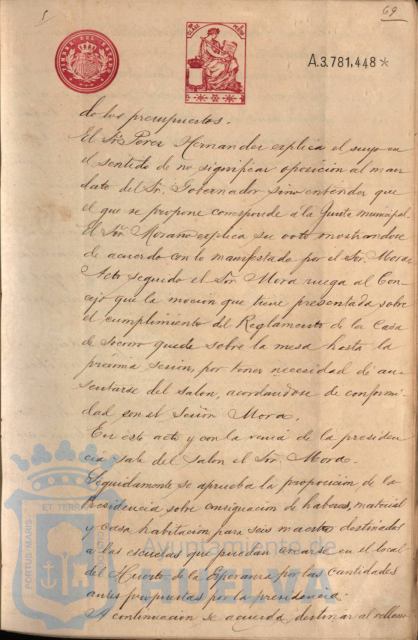 69
A.3.781,448*
TIMBRE DEL ESTADO
de los presupuestos.
El Sr. Perez Hernandez explica el suyo en
el sentido de no significar oposición al man
dato del Sr. Gobernador sino entender que
el que se propone corresponde á la Junta municipal.
El Sr. Moraño explica su voto mostrandose
de acuerdo con lo manifestado por el Sor. Mora.
Acto seguido el Sor. Mora ruega al Con
cejo que la moción que tiene presentada sobre
el cumplimiento del Reglamento de la Casa
de Socorro quede sobre la mesa hasta la
próxima sesion, por tener necesidad de au
sentarse del salon, acordandose de conformi
dad con el Señor Mora.
En este acto y con la venia de la presiden
cia sale del salon el Sor. Mora.
Seguidamente se aprueba la proposición de la
Presidencia sobre consignación de haberes, material
y casa habitación para seis maestros destinados
a las escuelas que puedan crearse en el local
del Huerto de la Esperanza por las cantidades
antes propuestas por la presidencia.
A continuacion se acuerda, destinar al relleno
Ayuntamiento de
HUELVA
PORTUS MARIS
ET TERRAE